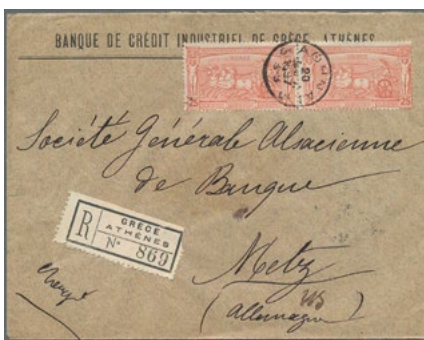 BANQUE DE CRÉDIT INDUSTRIEL DE GRÈCE, ATHÈNES
25
Société Générale Alsacienne
de Banque
R
GRÈCE
ATHÈNES
N° 869
Metz
(Allemagne)